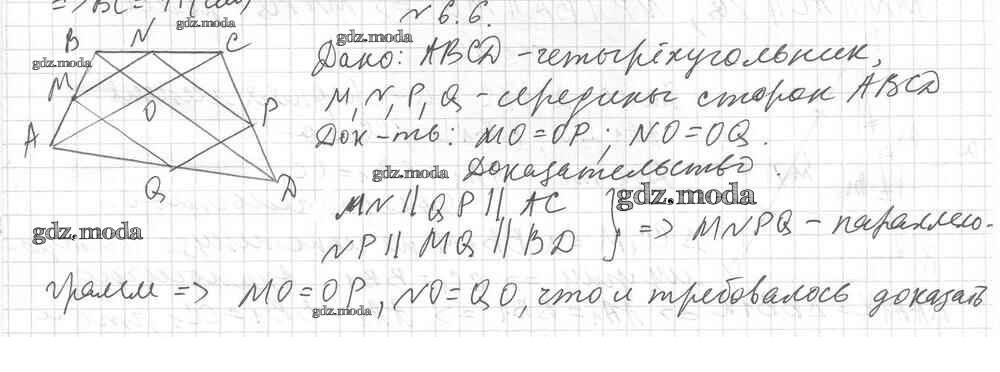 => BC = 
№ 6.6.
gdz.moda
B N C
gdz.moda
gdz.moda
M
A
O
P
Q
D
Дано: ABCD - четырёхугольник,
M, N, P, Q - середины сторон ABCD
Док-ть: MO = OP; NO = OQ.
gdz.moda Доказательство.
MN || QP || AC
gdz.moda
NP || MQ || BD } => MNPQ - параллело-
gdz.moda
грамм => MO = OP, NO = QO, что и требовалось доказать
gdz.moda